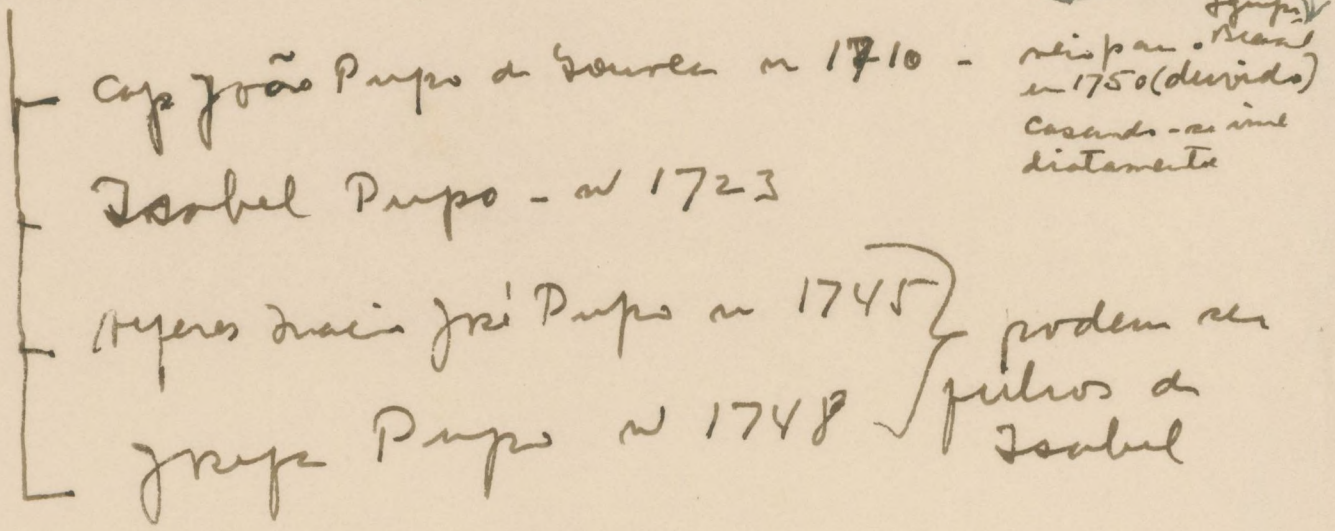 Cap João Pupo de Gouvea n 1710 - veio para o Brasil
em 1750 (duvido)
casando-se ime
diatamente
Isabel Pupo - n 1723
Alferes Inacio José Pupo n 1745
Josefa Pupo n 1748
podem ser
filhos de
Isabel